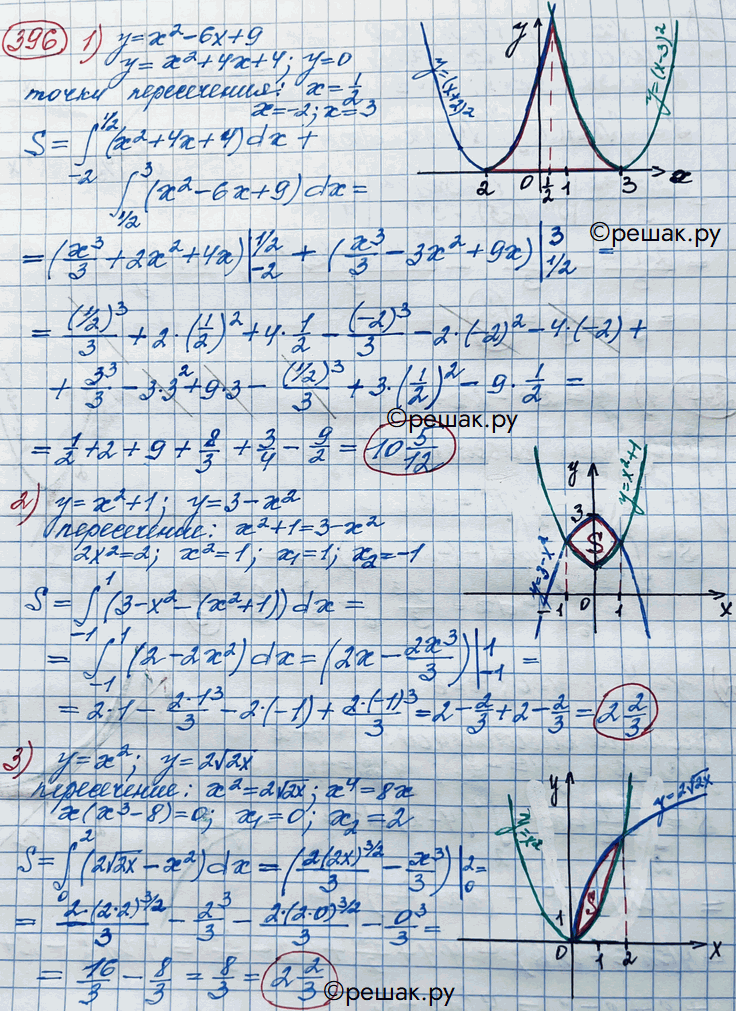 396 1) y=x²-6x+9
y=x²+4x+4; y=0
точки пересечения: x=1/2
x=-2; x=3
S=∫₋₂^(1/2) (x²+4x+4)dx +
∫_(1/2)^3 (x²-6x+9)dx=
y=(x+2)²
y
y=(x-3)²
2 0 1/2 1 3 x
©решак.ру
=(x³/3+2x²+4x)|_(-2)^(1/2) + (x³/3-3x²+9x)|_(1/2)^3 =
= (1/2)³/3 + 2·(1/2)²+4·1/2 - (-2)³/3 - 2·(-2)² - 4·(-2) +
+ 3³/3 - 3·3²+9·3 - (1/2)³/3 + 3·(1/2)² - 9·1/2 =
©решак.ру
= 1/2+2+9+8/3+3/4-9/2 = 10 5/12
2) y=x²+1; y=3-x²
пересечение: x²+1=3-x²
2x²=2; x²=1; x₁=1; x₂=-1
S=∫₋₁^1 (3-x²-(x²+1))dx=
=∫₋₁^1 (2-2x²)dx=(2x-2x³/3)|_(-1)^1 =
=2·1-2·1³/3-2·(-1)+2·(-1)³/3=2-2/3+2-2/3=2 2/3
y
y=x²+1
3
S
y=3-x²
-1 0 1 x
3) y=x²; y=2√2x
пересечение: x²=2√2x; x⁴=8x
x(x³-8)=0; x₁=0; x₂=2
S=∫₀^2 (2√2x-x²)dx=(2(2x)^(3/2)/3-x³/3)|_0^2=
= 2·(2·2)^(3/2)/3 - 2³/3 - 2·(2·0)^(3/2)/3 - 0³/3=
= 16/3-8/3=8/3= 2 2/3
y
y=2√2x
y=x²
S
1
0 1 2 x
©решак.ру